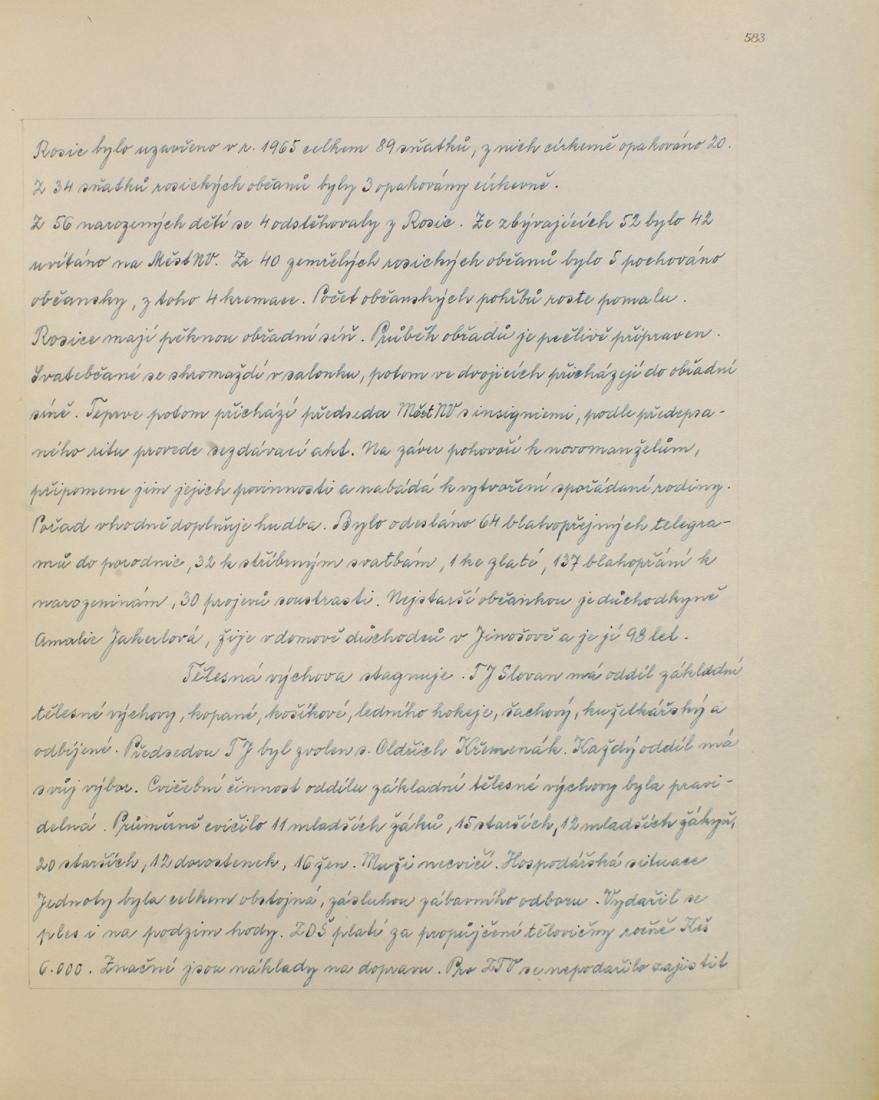 583
Rosic bylo uzavřeno v r. 1965 celkem 89 sňatků, z nich církevně opakováno 20.
Z 34 sňatků rosických občanů byly 3 opakovány církevně.
Z 56 narozených dětí se 4 odstěhovaly z Rosic. Ze zbývajících 52 bylo 42
uvítáno na MěstNV. Ze 40 zemřelých rosických občanů bylo 5 pochováno
občansky, z toho 4 kremace. Počet občanských pohřbů roste pomalu.
Rosice mají pěknou obřadní síň. Průběh obřadů je pečlivě připraven.
Svatebčané se shromaždí v salonku, potom ve dvojicích přicházejí do obřadní
síně. Teprve potom přichází předseda MěstNV s insigniemi, podle předepsa-
ného ritu provede sezdávací akt. Na závěr pohovoří k novomanželům,
připomene jim jejich povinnosti a nabádá k vytvoření spořádané rodiny.
Pořad vhodně doplňuje hudba. Bylo odesláno 64 blahopřejných telegra-
mů do porodnic, 32 k stříbrným svatbám, 1 ke zlaté, 137 blahopřání k
narozeninám, 30 projevů soustrasti. Nejstarší občankou je důchodkyně
Amalie Jakerlová, žije v domově důchodců v Jinošově a je jí 98 let.
Tělesná výchova stagnuje. TJ Slovan má oddíl základní
tělesné výchovy, kopané, košíkové, ledního hokeje, šachový, kuželkářský a
odbíjené. Předsedou TJ byl zvolen s. Oldřich Křemenák. Každý oddíl má
svůj výbor. Cvičební činnost oddílu základní tělesné výchovy byla pravi-
delná. Průměrně cvičilo 11 mladších žáků, 15 starších, 12 mladších žákyň,
20 starších, 12 dorostenek, 16 žen. Muži necvičí. Hospodářská situace
Jednoty byla celkem obstojná, zásluhou zábavního odboru. Vydařil se
ples i na podzim hody. ZDŠ platí za propůjčení tělocvičny ročně Kčs
6.000. Značné jsou náklady na dopravu. Pro ZTV se nepodařilo zajistit